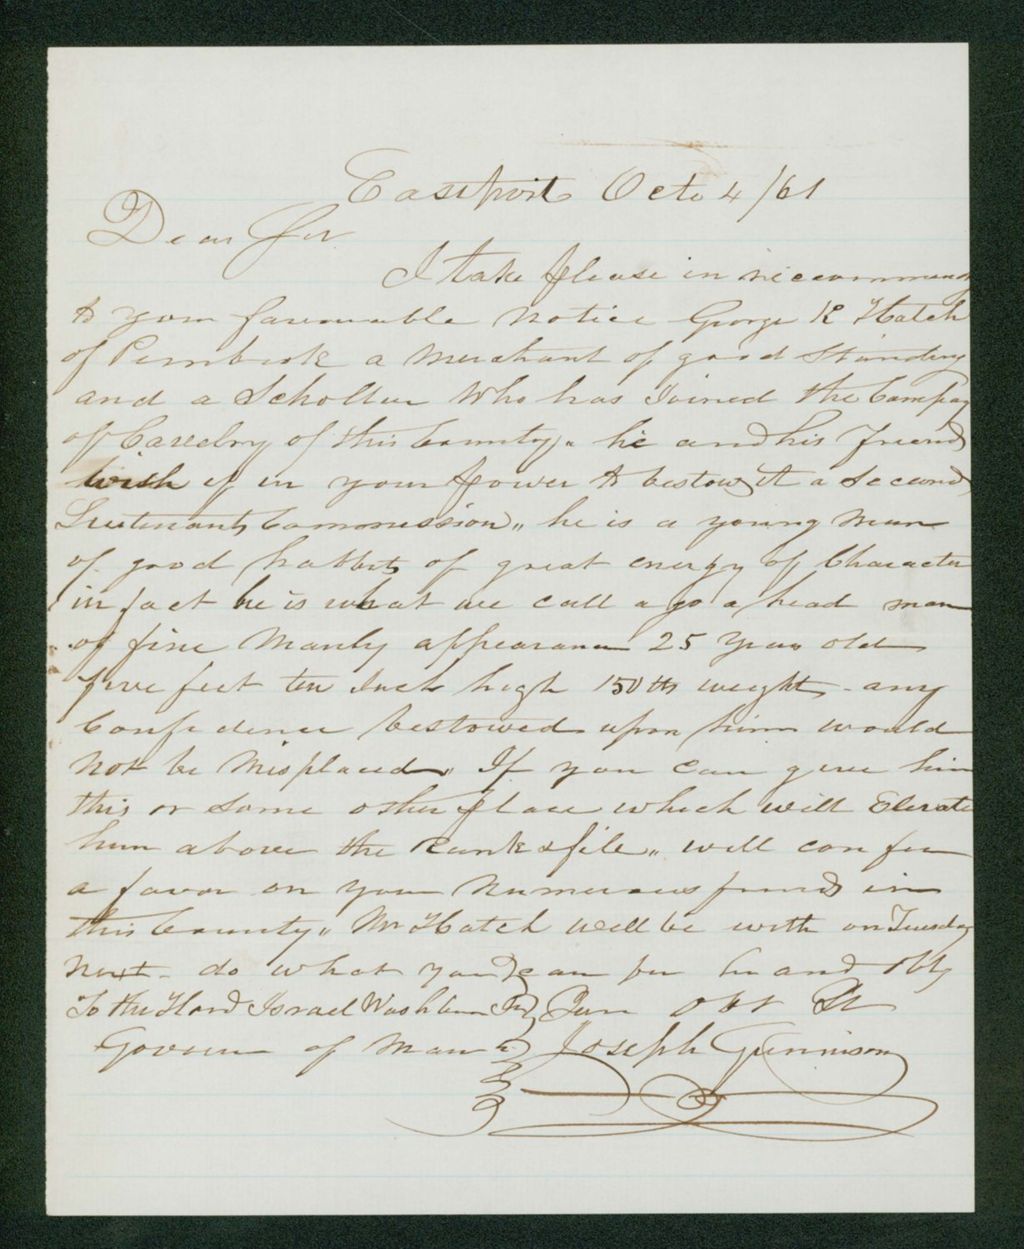 Eastport Octo 4/61
Dear Sir
I take please in reccommend
to your favourable notice George R Hatch
of Pembrok a Merchant of good Standing
and a Schollar Who has Joined the Compay
of Cavelry of this County,, he and his Friend
wish if in your power to bestow it a Second
Lieutenants Commission,, he is a young Man
of good habbits of great energy of Character
in fact he is what we call a go a head man
of fine Manly appearance 25 Years old
five feet ten Inch high 150 lbs weight - any
Confidence bestowed upon him would
Not be Misplaced,, If you can give him
this or some other place which will Elevate
him above the Rank & file,, will confer
a favor on your Numerous friends in
this County,, Mr Hatch will be with on Tuesday
Next - do what you can for him and oblg
To the Hon Israel Washburn Jr Your Obt St
Govener of Maine Joseph Gunnison